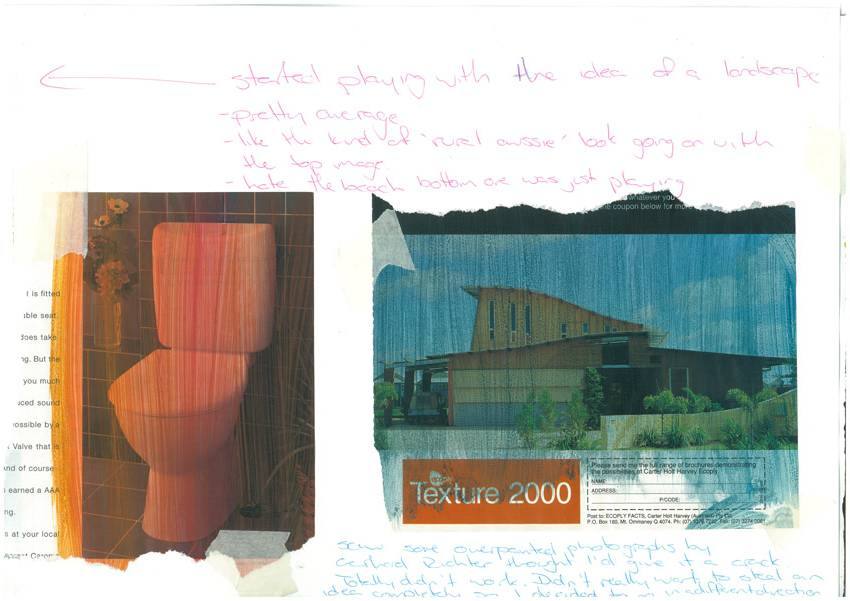 started playing with the idea of a landscape
- pretty average
- like the kind of 'rural aussie' look going on with
the top image.
- hate the beach bottom one was just playing
whatever you
the coupon below for more
l is fitted
able seat.
does take
ng. But the
you much
uced sound
possible by a
Valve that is
And of course
earned a AAA
ng.
s at your local
Texture 2000
Please send me the full range of brochures demonstrating
the possibilities of Carter Holt Harvey Ecoply.
NAME:
ADDRESS:
P/CODE:
Post to: ECOPLY FACTS, Carter Holt Harvey
P.O. Box 180, Mt. Ommaney Q 4074. Ph:
saw some overpainted photographs by
Gerhard Richter thought I'd give it a crack.
Totally didn't work. Didn't really want to steal an
idea completely so I decided to go in a different direction